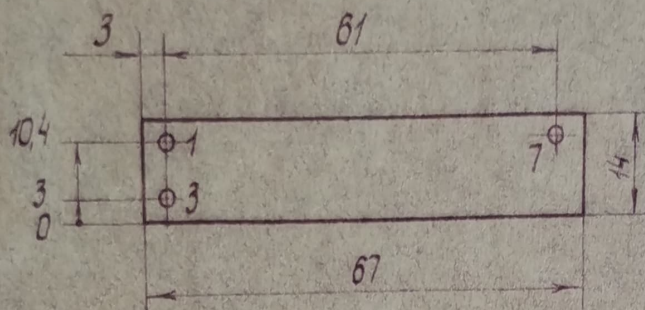 3 61
10,4 1 7 14
3 3
0
67